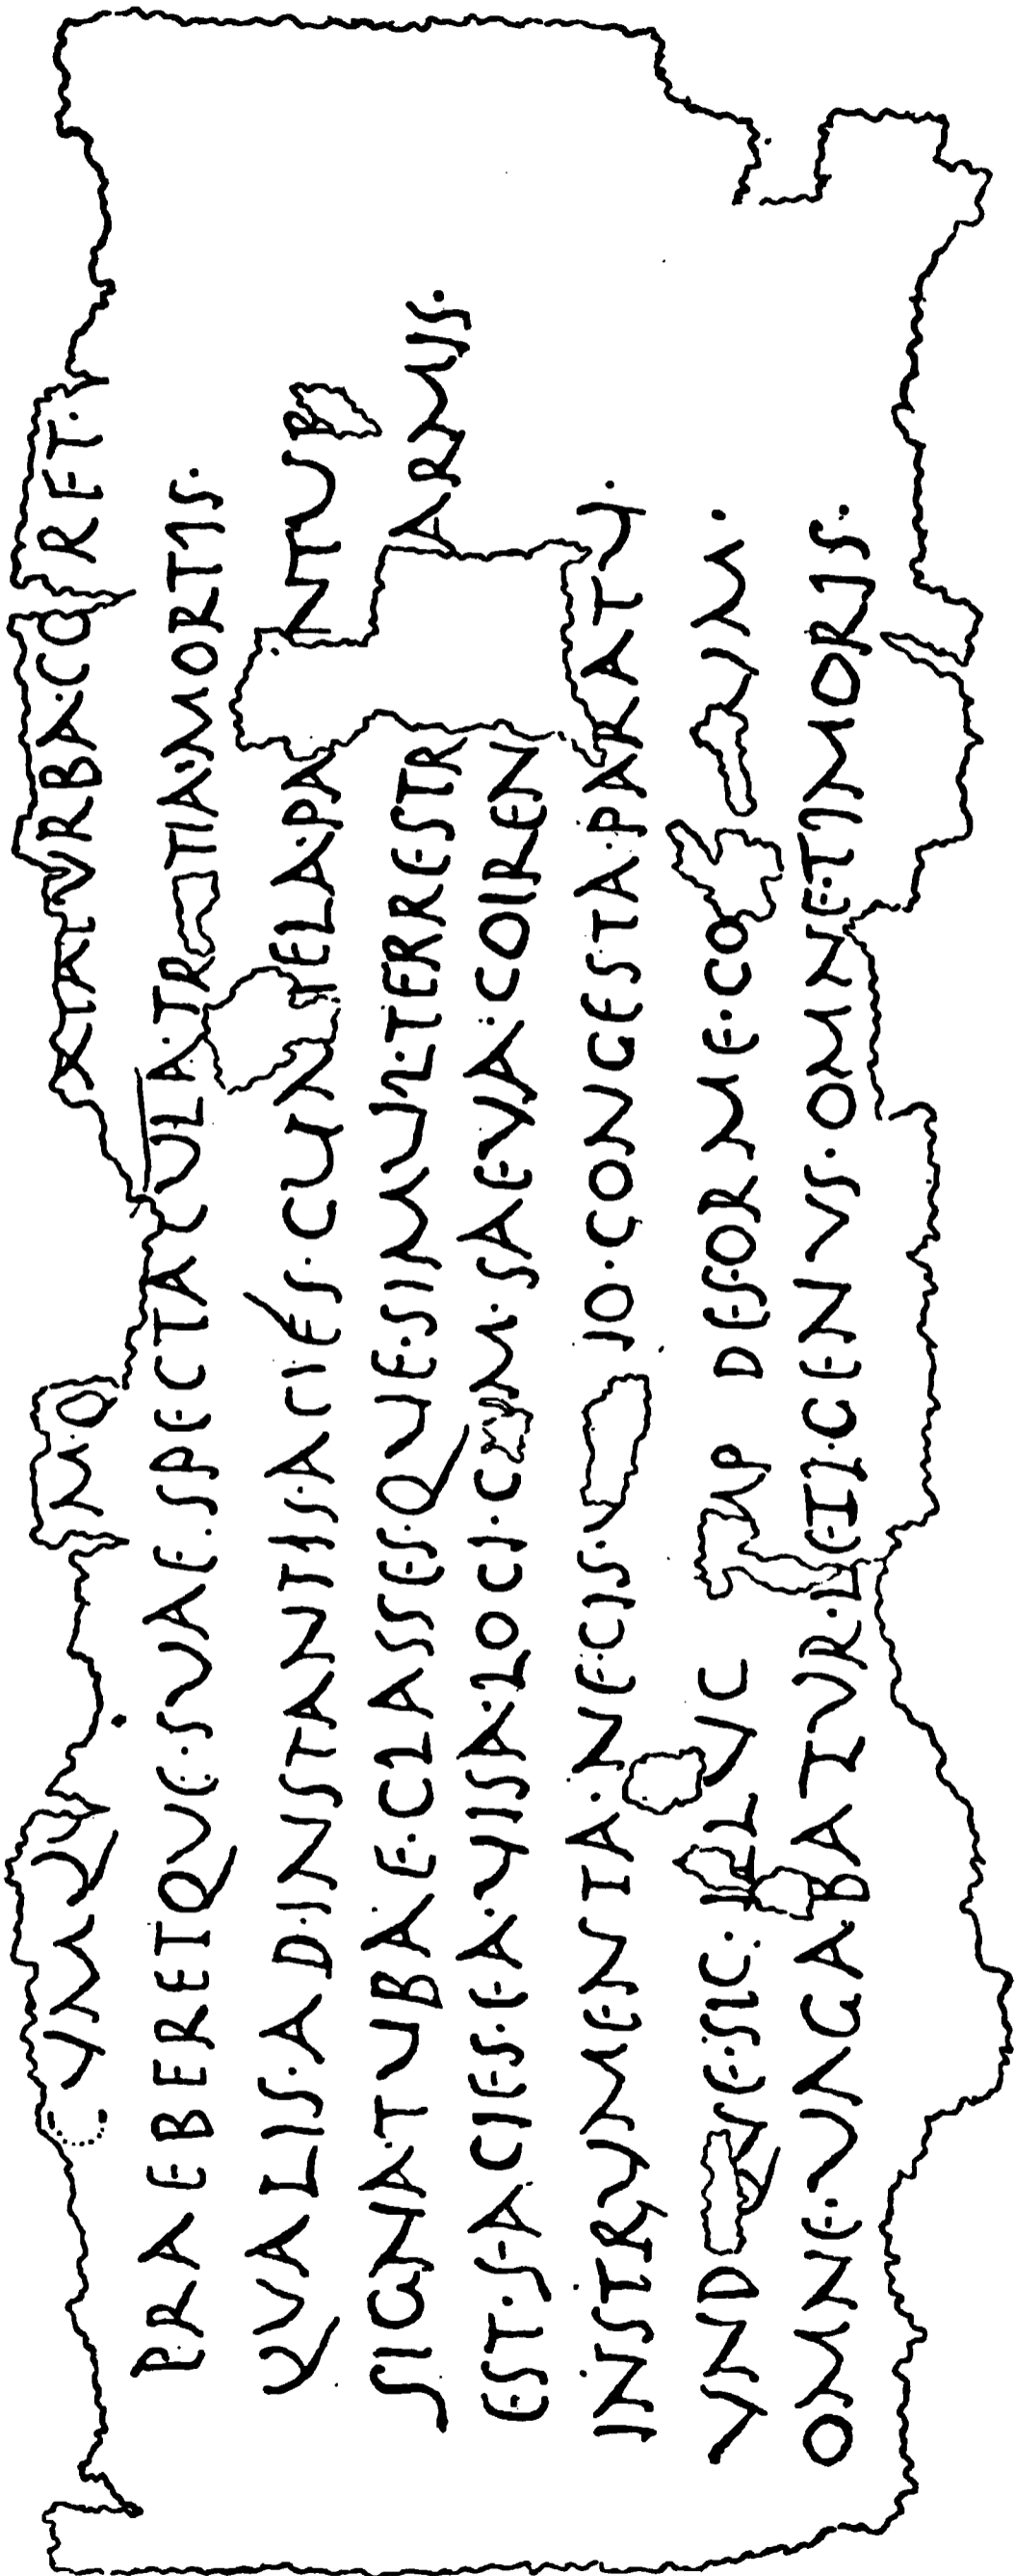 CVMQV M·Q XIA TVRBA·COIRET·
PRAEBERETQVE·SVAE·SPECTACVLA·TR TIA·MORTIS·
QVALIS·AD·INSTANTIS·ACIES·CVM TELA·PA NTVR
SIGNA TVBAE·CLASSESQVE·SIMVL·TERRESTR ARMIS·
EST·FACIES·EA·VISA·LOCI·C M·SAEVA·COIREN
INSTRVMENTA·NECIS·V IO·CONGESTA·PARATV·
VND QVE·SIC·ILL VC MP DEFORME·CO VM·
OMNE·VAGABATVR·LETI·GENVS·OMNE·TIMORIS·